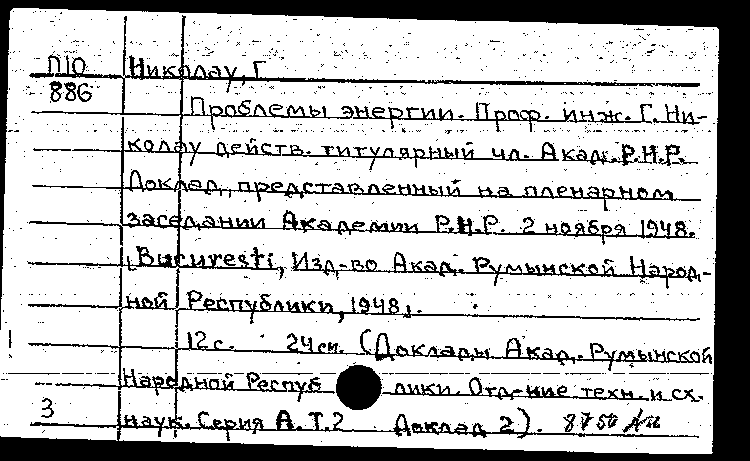 П10 Николау, Г
886
Проблемы энергии. Проф. инж. Г. Ни-
колау действ. титулярный чл. Акад. Р.Н.Р.
Доклад, представленный на пленарном
заседании Академии Р.Н.Р. 2 ноября 1948.
[Bucuresti, Изд-во Акад. Румынской Народ-
ной Республики, 1948].
12с. 24см. (Доклады Акад. Румынской
Народной Респуб лики. Отд-ние техн. и сх.
3 наук. Серия А. Т.2 Доклад 2). 8750